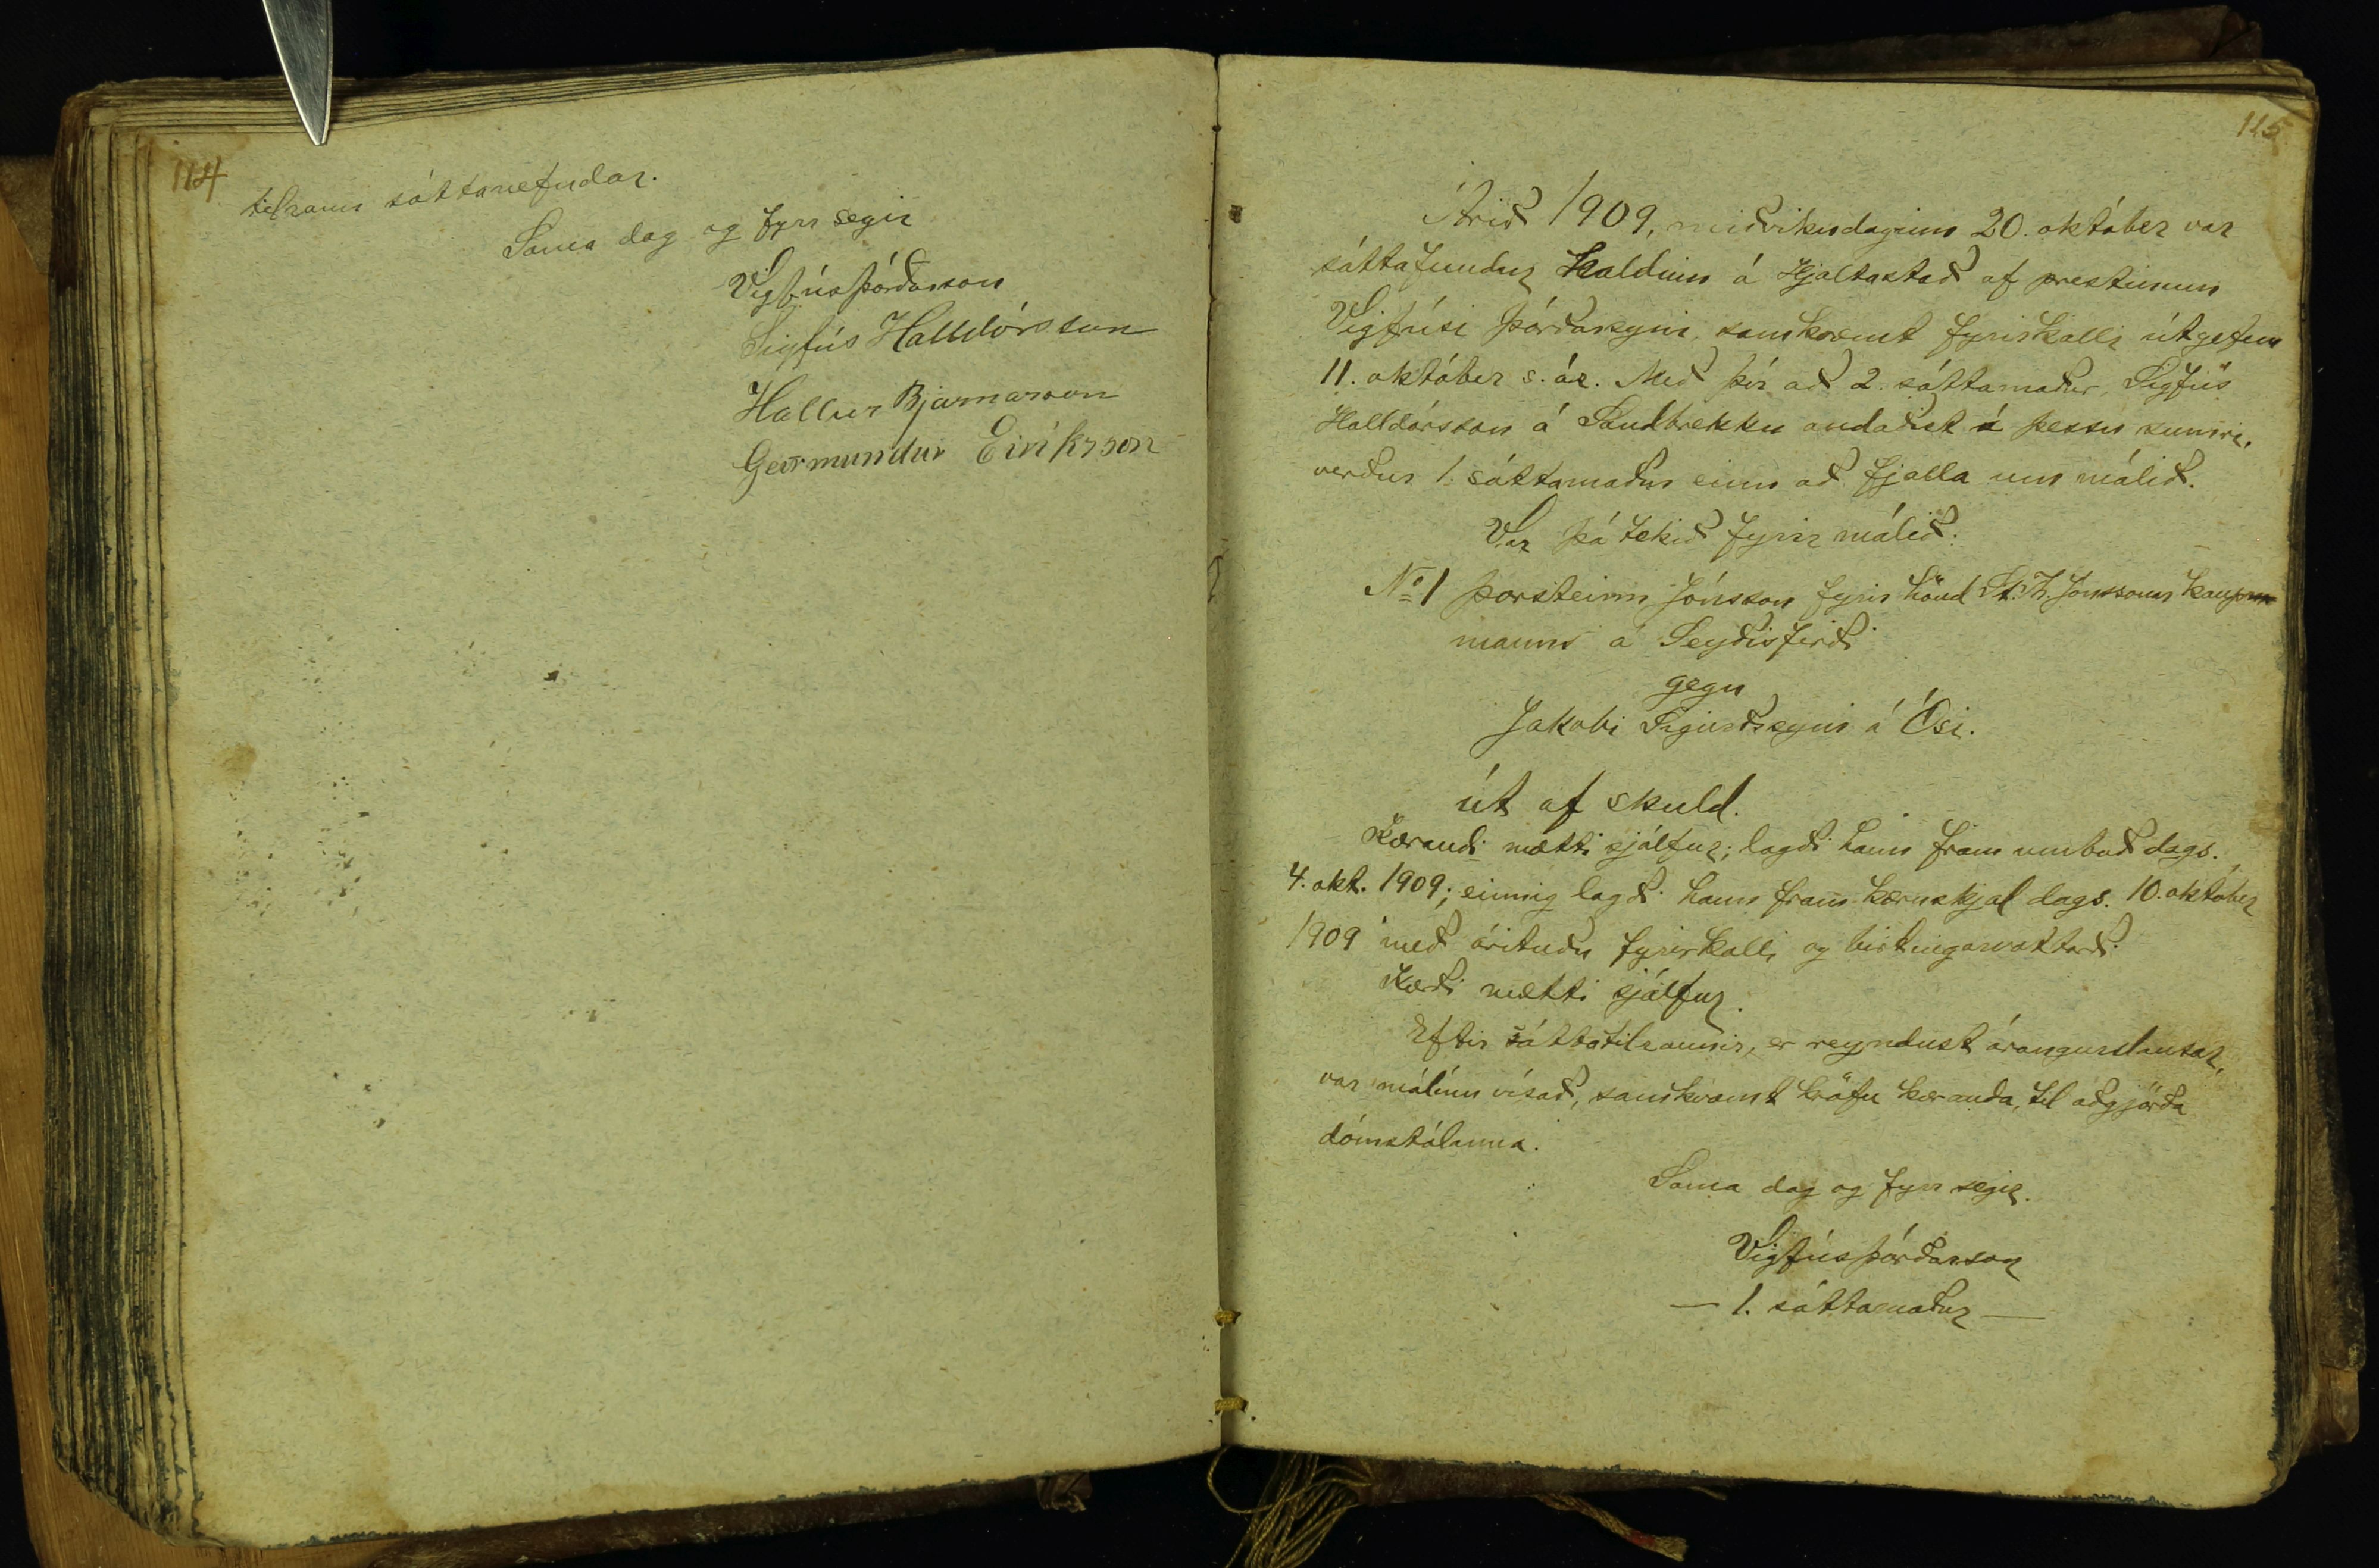 114
tilraun sáttanefndar.
Sama dag og fyrr segir
Vigfús Þórðarson
Sigfús Halldórsson
Hallur Bjarnarson
Geirmundur Eiríksson
115
Árið 1909, miðvikudaginn 20. október var
sáttafundur haldinn á Hjaltastað af prestinum
Vigfúsi Þórðarsyni, samkvæmt fyrirkalli útgefnu
11. október s. ár. Með því að 2. sáttamaður, Sigfús
Halldórsson á Sandbrekku andaðist á þessu sumri,
verður 1. sáttamaður einn að fjalla um málið.
Var þá tekið fyrir málið:
No 1 Þorsteinn Jónsson fyrir hönd St. Th. Jónssonar kaup
manns á Seyðisfirði
gegn
Jakobi Sigurðssyni á Ósi.
út af skuld.
Kærandi mætti sjálfur; lagði hann fram umboð dags.
4. okt. 1909; einnig lagði hann fram kæruskjal dags. 10. október
1909 með árituðu fyrirkalli og birtingarvottorði.
Kærði mætti sjálfur.
Eftir sáttatilraunir, er reyndust árangurslausar,
var málinu vísað, samkvæmt kröfu kæranda, til aðgjörða
dómstólanna.
Sama dag og fyrr segir.
Vigfús Þórðarson
— 1. sáttamaður —